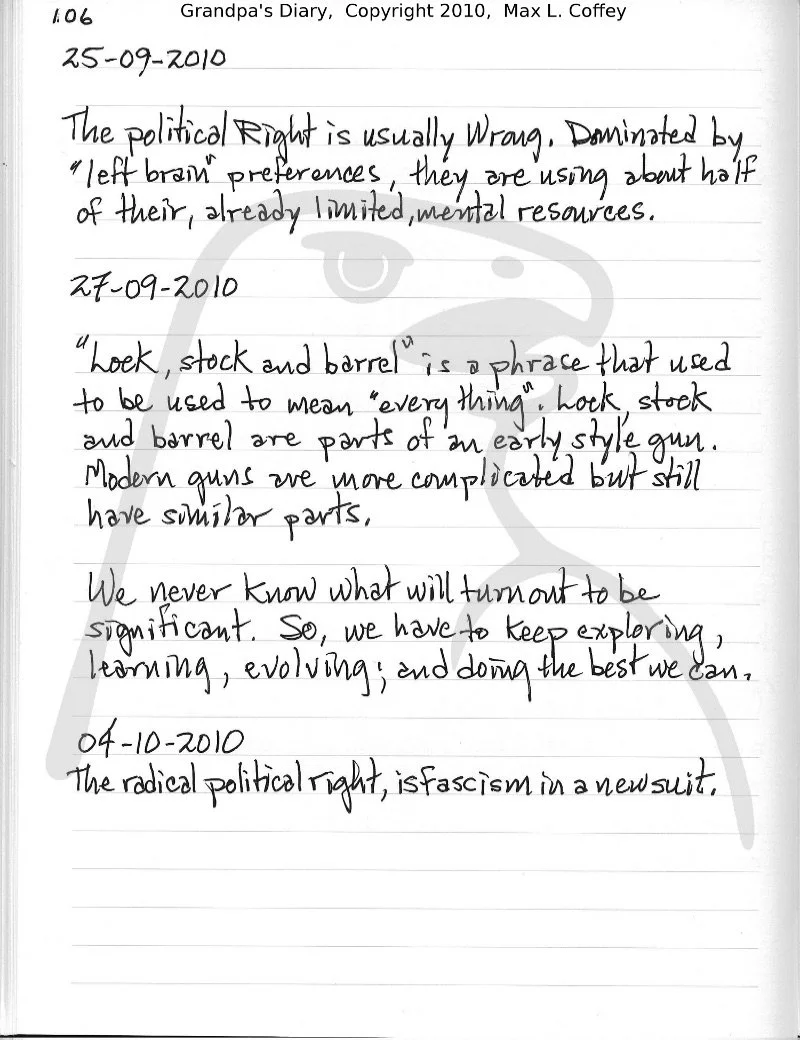 106
Grandpa's Diary, Copyright 2010, Max L. Coffey
25-09-2010
The political Right is usually Wrong. Dominated by
"left brain" preferences, they are using about half
of their, already limited, mental resources.
27-09-2010
"Lock, stock and barrel" is a phrase that used
to be used to mean "every thing". Lock, stock
and barrel are parts of an early style gun.
Modern guns are more complicated but still
have similar parts.
We never know what will turn out to be
significant. So, we have to keep exploring,
learning, evolving; and doing the best we can.
04-10-2010
The radical political right, is fascism in a new suit.